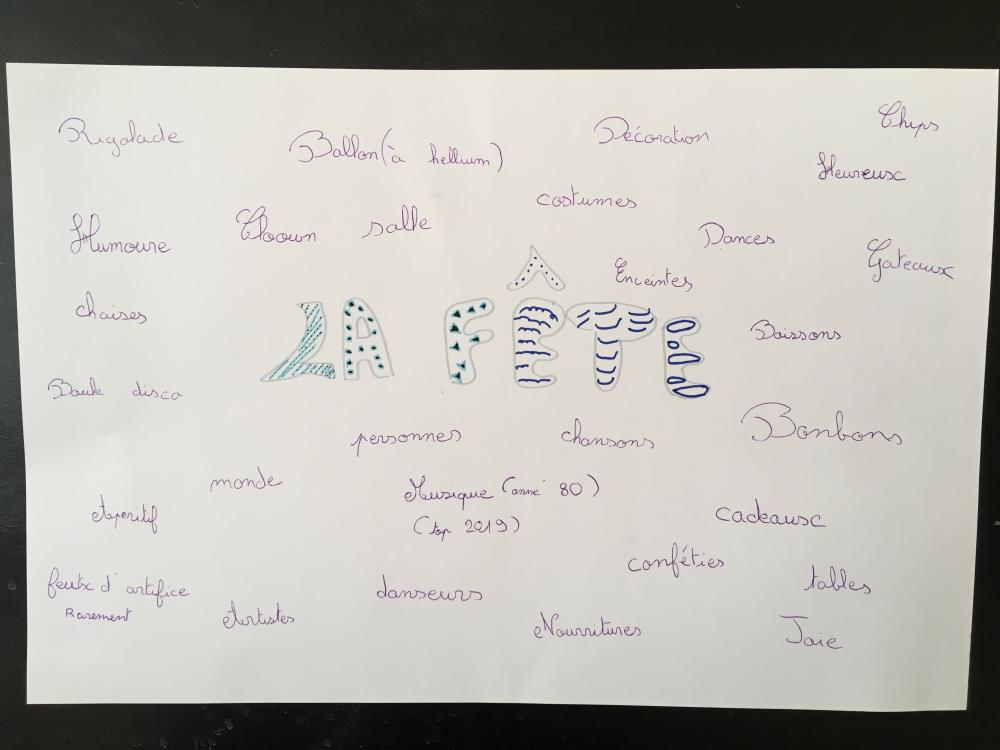 Rigolade
Ballon (à hellium)
Décoration
Chips
Heureux
costumes
Humoure
Cloown
salle
Dances
Gateaux
Enceintes
chaises
LA FÊTE
Boissons
disco
personnes
chansons
Bonbons
monde
Musique (anné 80)
(top 2019)
Aperitif
cadeaux
conféties
tables
feux d'artifice
Rarement
danseurs
Artistes
Nourritures
Joie